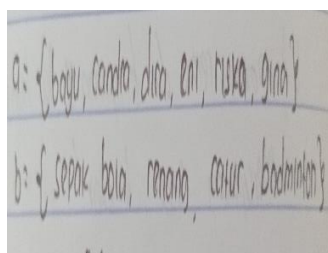 a = {bayu, candra, dira, eni, riska, gina}
b = {sepak bola, renang, catur, badminton}